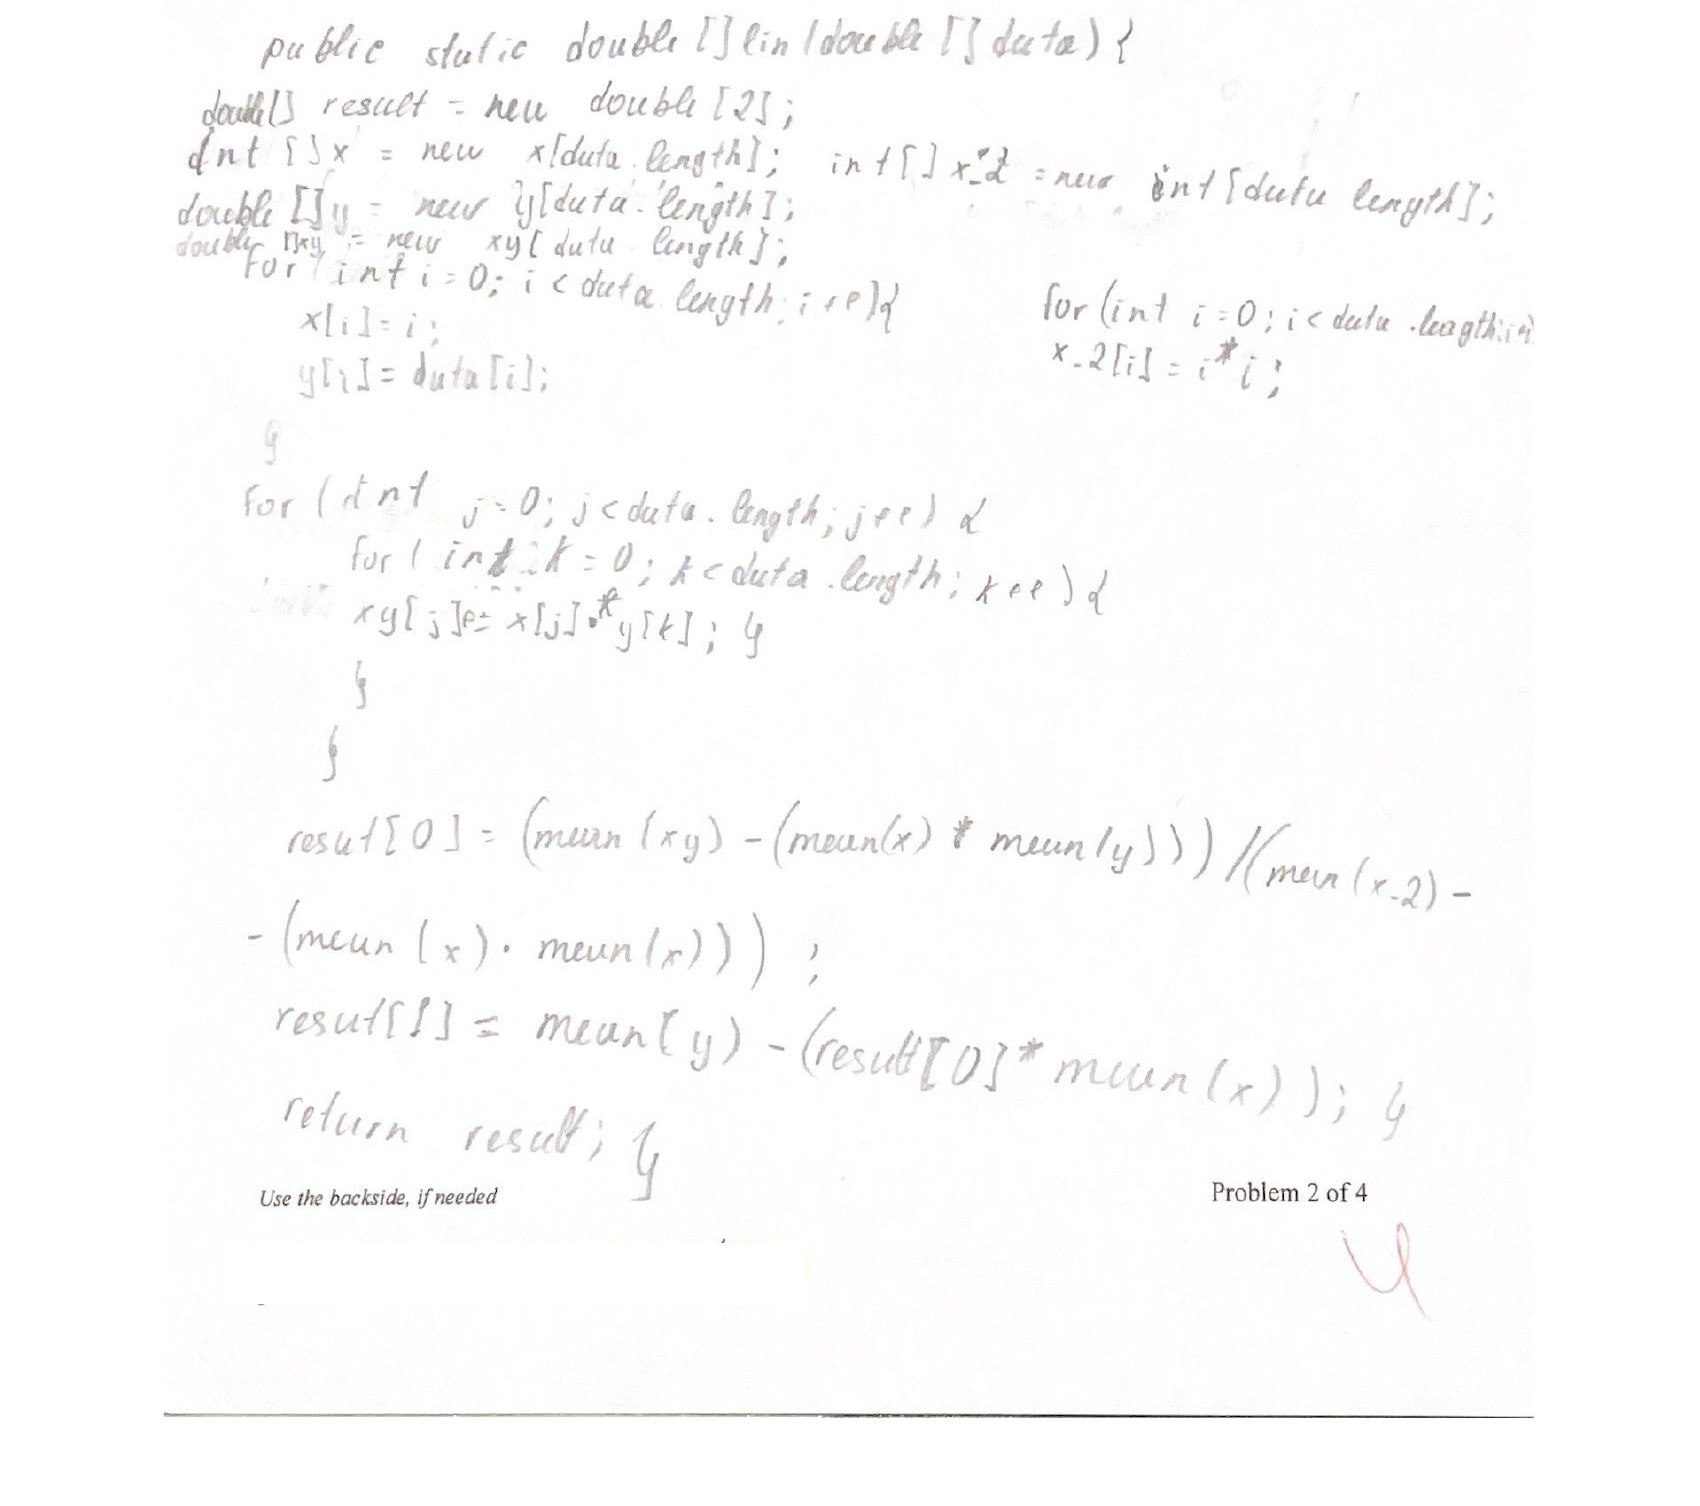 public static double [] lin (double [] data) {
double[] result = new double [2];
int [] x = new x[data.length]; int [] x_2 = new int [data length];
double [] y = new y[data.length];
double []xy = new xy[data length];
for (int i=0; i<data length; i++){ for (int i=0; i<data .length;i+
x[i]=i; x_2[i]=i*i;
y[i]=data[i];
}
for (int j=0; j<data.length; j++) {
for (int k=0; k<data.length; k++) {
xy[j]+= x[j]*y[k]; }
}
}
resut[0] = (mean (xy) - (mean(x) * mean(y))) / (mean (x_2) -
- (mean (x) · mean(x))) ;
resut[1] = mean(y) - (result[0]* mean(x)); }
return result; }
Use the backside, if needed Problem 2 of 4